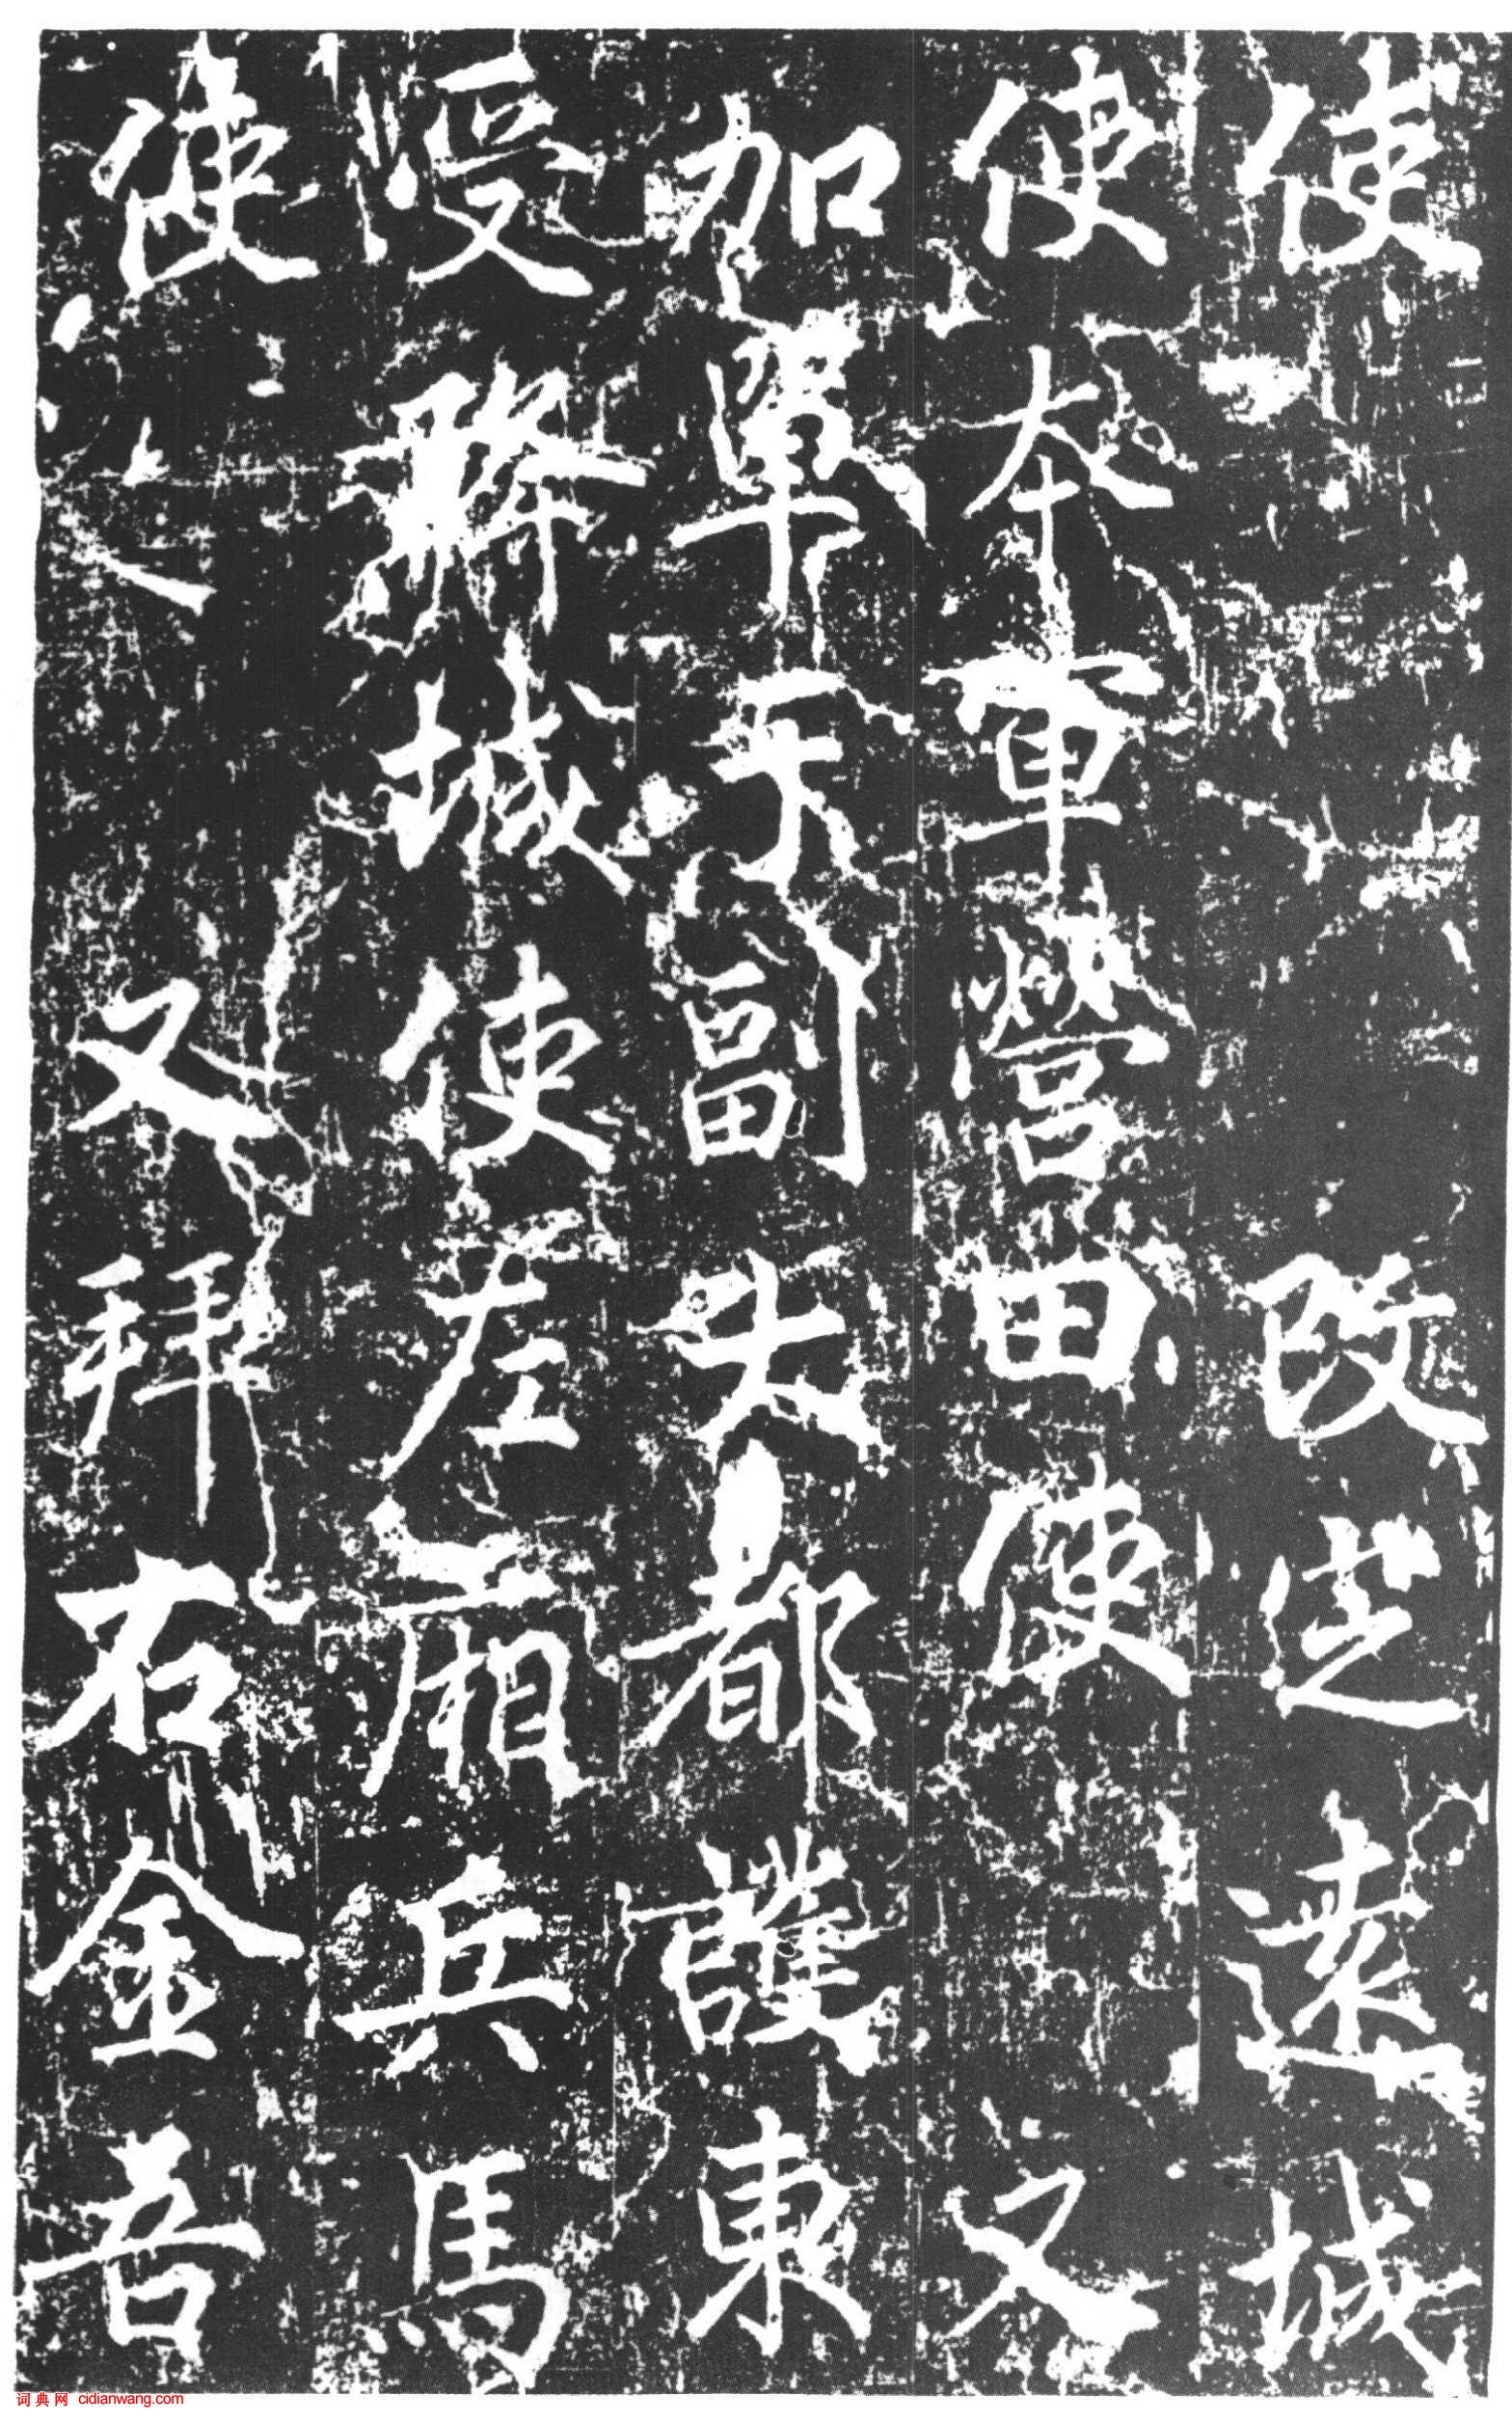 使改定遠城
使本軍營田使又
加單于副大都護東
受降城使左廂兵馬
使又拜右金吾
词典网 cidianwang.com